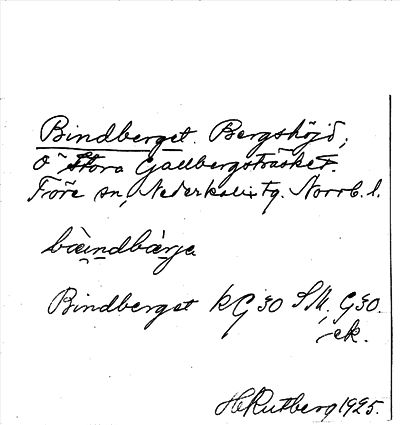 Bindberget. Bergshöjd,
O˜ Stora Gallbergsträsket.
Töre sn, Nederkalix tg. Norrb. l.
bæ̀indbæ̀rja
Bindberget KG 30 SM. G30.
-ek.
H Rutberg 1925.